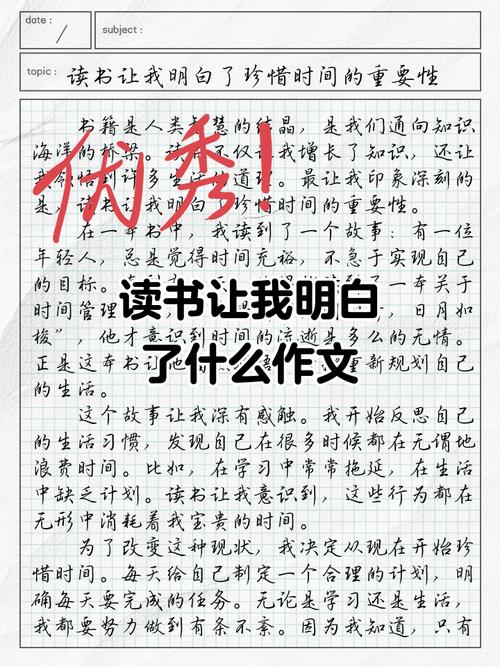 date :
subject :
topic : 读书让我明白了珍惜时间的重要性
书籍是人类 慧的结晶，是我们通向知识
海洋的桥梁。读 不仅让我增长了知识，还让
我领悟到许多生活 道理。最让我印象深刻的
是，读书让我明白 珍惜时间的重要性。
优秀！
在一本书中，我读到了一个故事：有一位
年轻人，总是觉得时间充裕，不急于实现自己
的目标。 一本关于
时间管理 ，日月如
读书让我明白
梭”，他才意识到时间的流逝是多么的无情。
了什么作文
正是这本书让他 重新规划自己
的生活。
这个故事让我深有感触。我开始反思自己
的生活习惯，发现自己在很多时候都在无谓地
浪费时间。比如，在学习中常常拖延，在生活
中缺乏计划。读书让我意识到，这些行为都在
无形中消耗着我宝贵的时间。
为了改变这种现状，我决定从现在开始珍
惜时间。每天给自己制定一个合理的计划，明
确每天要完成的任务。无论是学习还是生活，
我都要努力做到有条不紊。因为我知道，只有